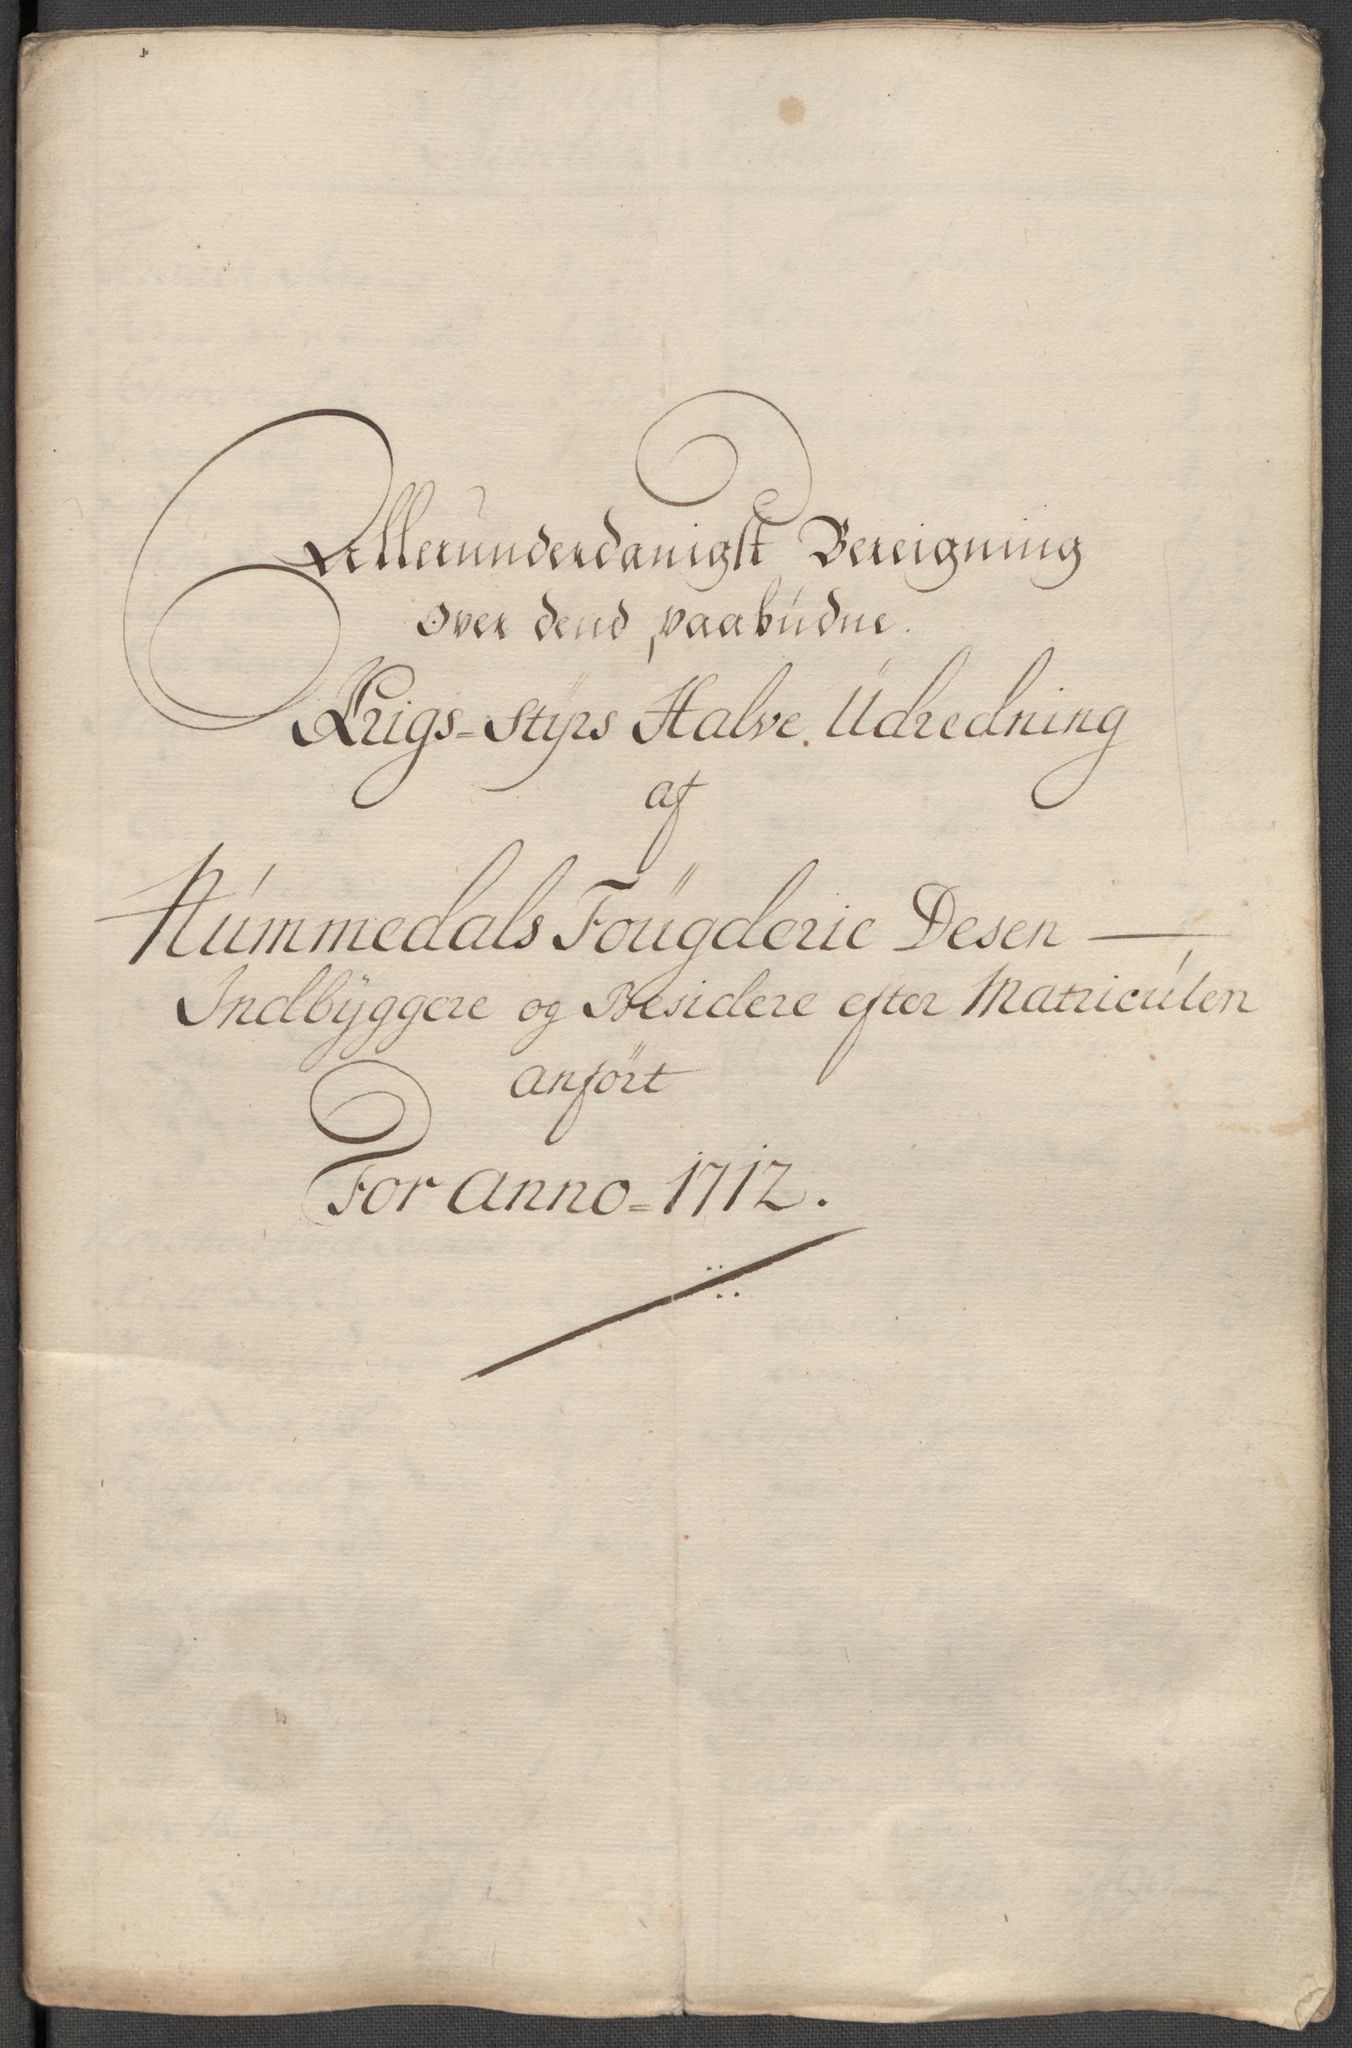 Allerunderdanigst Bereigning
over dend paabudne
Krigs-Styrs Halve Udredning
af
Nummedals Fougderie Desen
Indbyggere og Besidere efter Matriculen
anført
For Anno=1712.